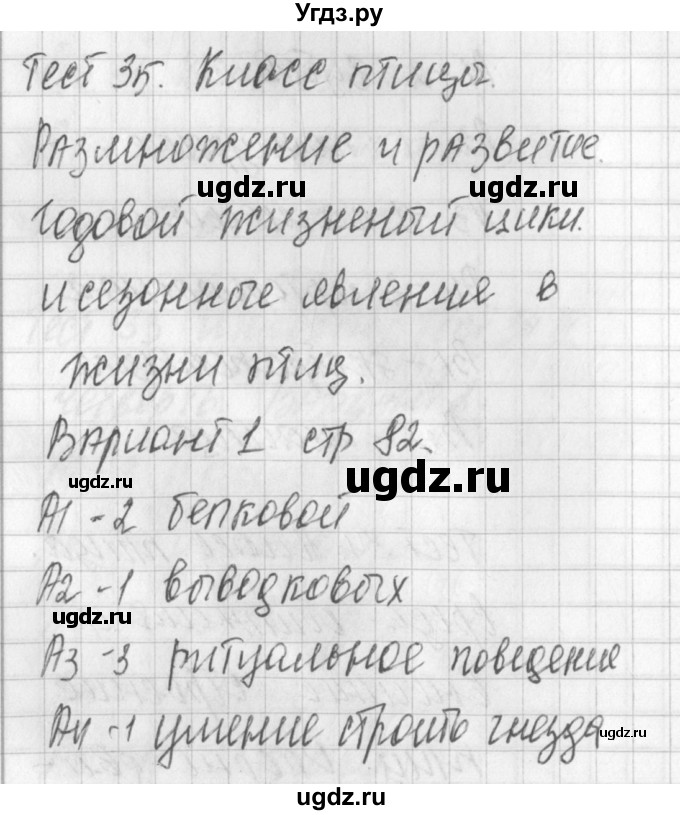 Угдз.ру
Тест 35. Класс птицы.
Размножение и развитие.
ugdz.ru ugdz.ru
Годовой жизненый цикл.
и сезонные явления в
жизни птиц.
Вариант 1 стр 82.
ugdz.ru ugdz.ru
А1 - 2 белковой
А2 - 1 выводковых
ugdz.ru
А3 - 3 ритуальное поведение
А4 - 1 умение строить гнезда
ugdz.ru
ugdz.ru